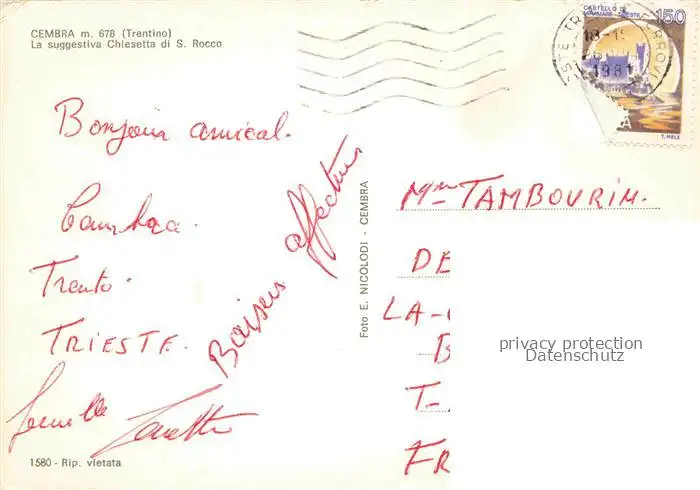 CEMBRA m. 678 (Trentino)
La suggestiva Chiesetta di S. Rocco
CASTELLO DI
MIRAMARE - TRIESTE 150
18-19
1981
T. MELE
Bonjour amical.
Cembra.
Trento.
TRIESTE.
Baisers affectueux
famille
1580 - Rip. vietata
Foto E. NICOLODI - CEMBRA
Mme TAMBOURIN.
DE
LA-
B
T-
FR
privacy protection
Datenschutz